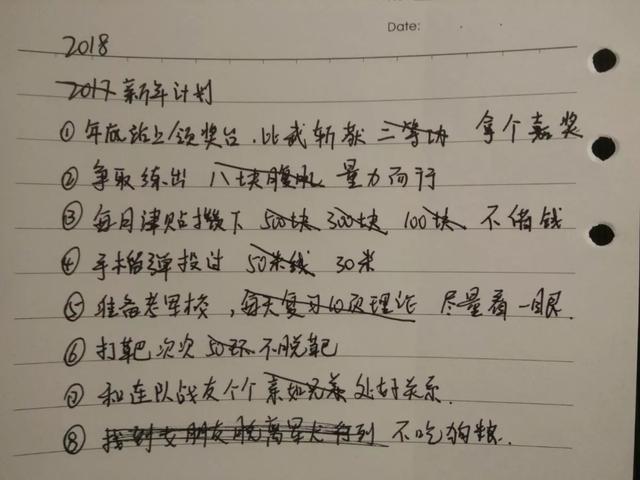 Date:
2018
2017 新年计划
① 年底站上领奖台，比武斩获 三等功 拿个嘉奖
② 争取练出 八块腹肌 量力而行
③ 每月津贴攒下 500块 300块 100块 不借钱
④ 手榴弹投过 50米线 30米
⑤ 准备考军校，每天复习10页理论 尽量看一眼.
⑥ 打靶次次 50环 不脱靶
⑦ 和连队战友个个 亲如兄弟 处好关系.
⑧ 找到女朋友脱离单身行列 不吃狗粮.